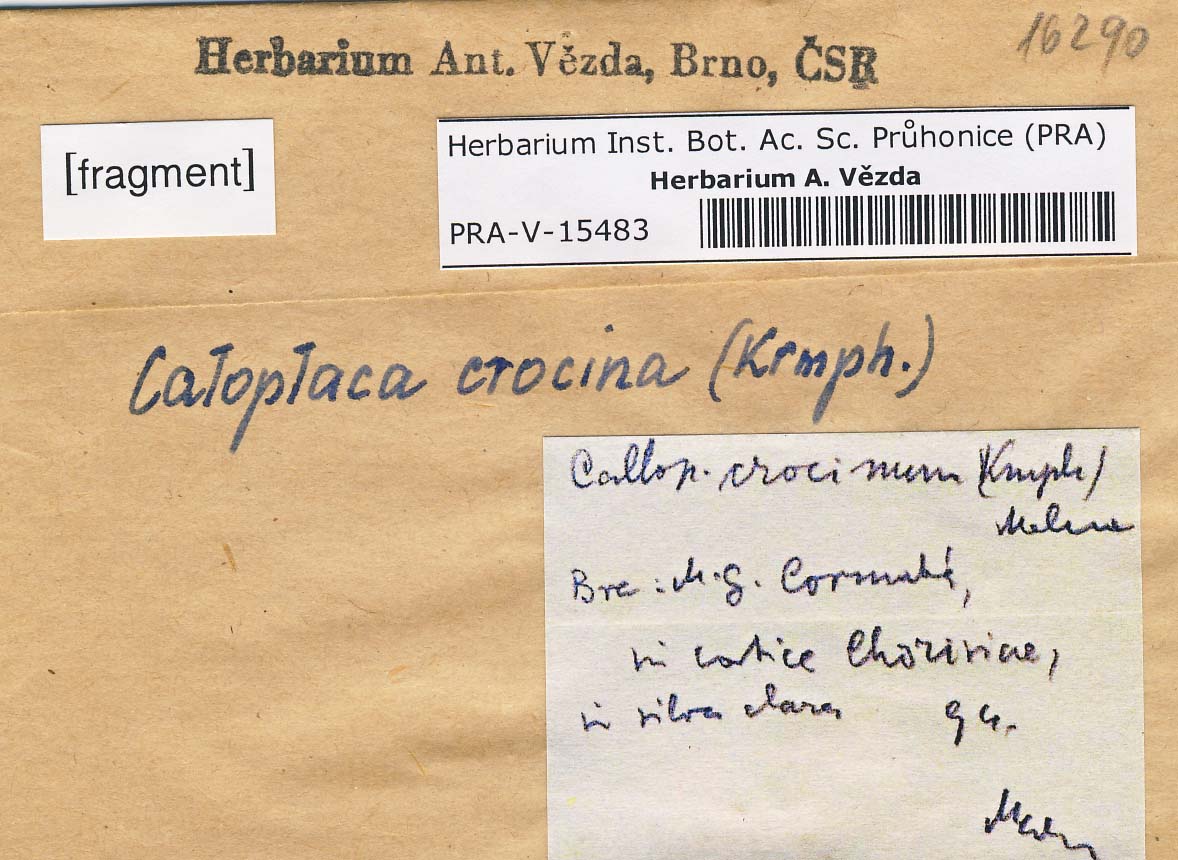 16290
Herbarium Ant. Vězda, Brno, ČSR
[fragment]
Herbarium Inst. Bot. Ac. Sc. Průhonice (PRA)
Herbarium A. Vězda
PRA-V-15483
Caloplaca crocina (Krmph.)
Callop. crocinum (Kmph)
Malme
M. G. Corumbá,
in cortice Chorisiae,
in silva clara